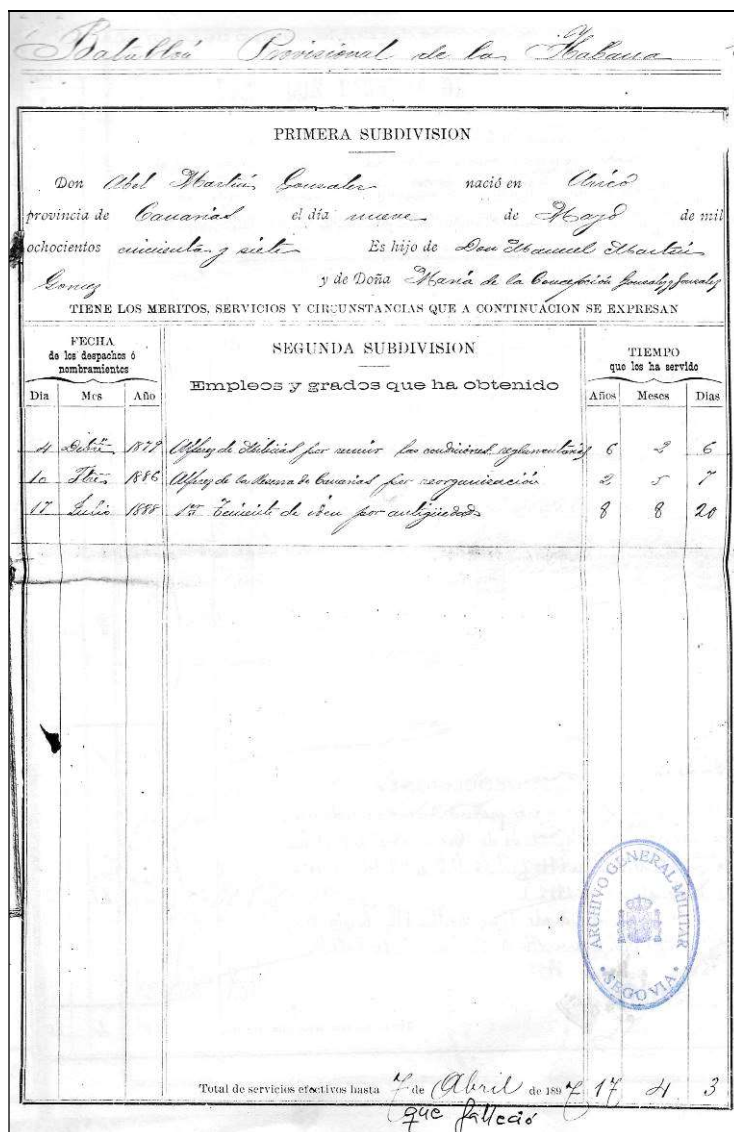 Batallón Provisional de la Habana
PRIMERA SUBDIVISION
Don Abel Martín Gonzalez nació en Arico
provincia de Canarias el día nueve de Mayo de mil
ochocientos cincuenta y siete Es hijo de Don Manuel Martín
Gomez y de Doña María de la Concepción Gonzalez y Gonzalez
TIENE LOS MERITOS, SERVICIOS Y CIRCUNSTANCIAS QUE A CONTINUACION SE EXPRESAN
FECHA de los despachos ó nombramientos
SEGUNDA SUBDIVISION
TIEMPO que los ha servido
Empleos y grados que ha obtenido
Dia Mes Año Años Meses Dias
4 1879 Alferez de Milicias por reunir las condiciones reglamentarias 6 2 6
10 1886 Alferez de la Reserva de Canarias por reorganización 2 5 7
17 Junio 1888 1er Teniente de idem por antigüedad 8 8 20
ARCHIVO GENERAL MILITAR
SEGOVIA
Total de servicios efectivos hasta 7 de Abril de 1897 17 4 3
que falleció